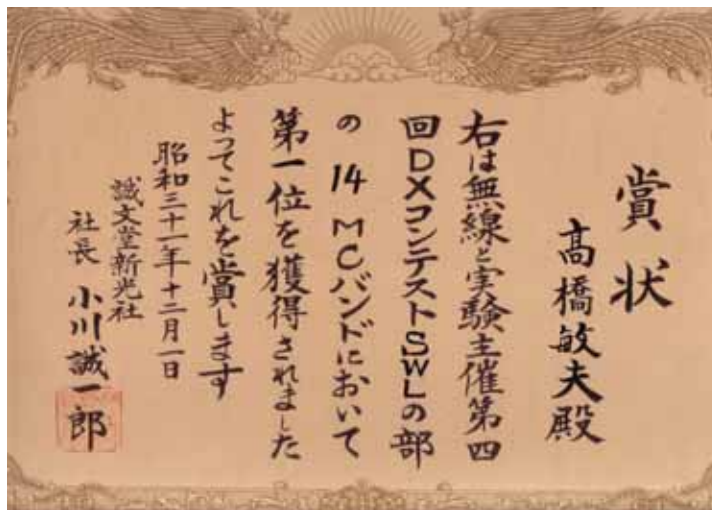 賞状
高橋敏夫殿
右は無線と実験主催第四
回DXコンテストSWLの部
の14MCバンドにおいて
第一位を獲得されました
よってこれを賞します
昭和三十一年十二月一日
誠文堂新光社
社長 小川誠一郎